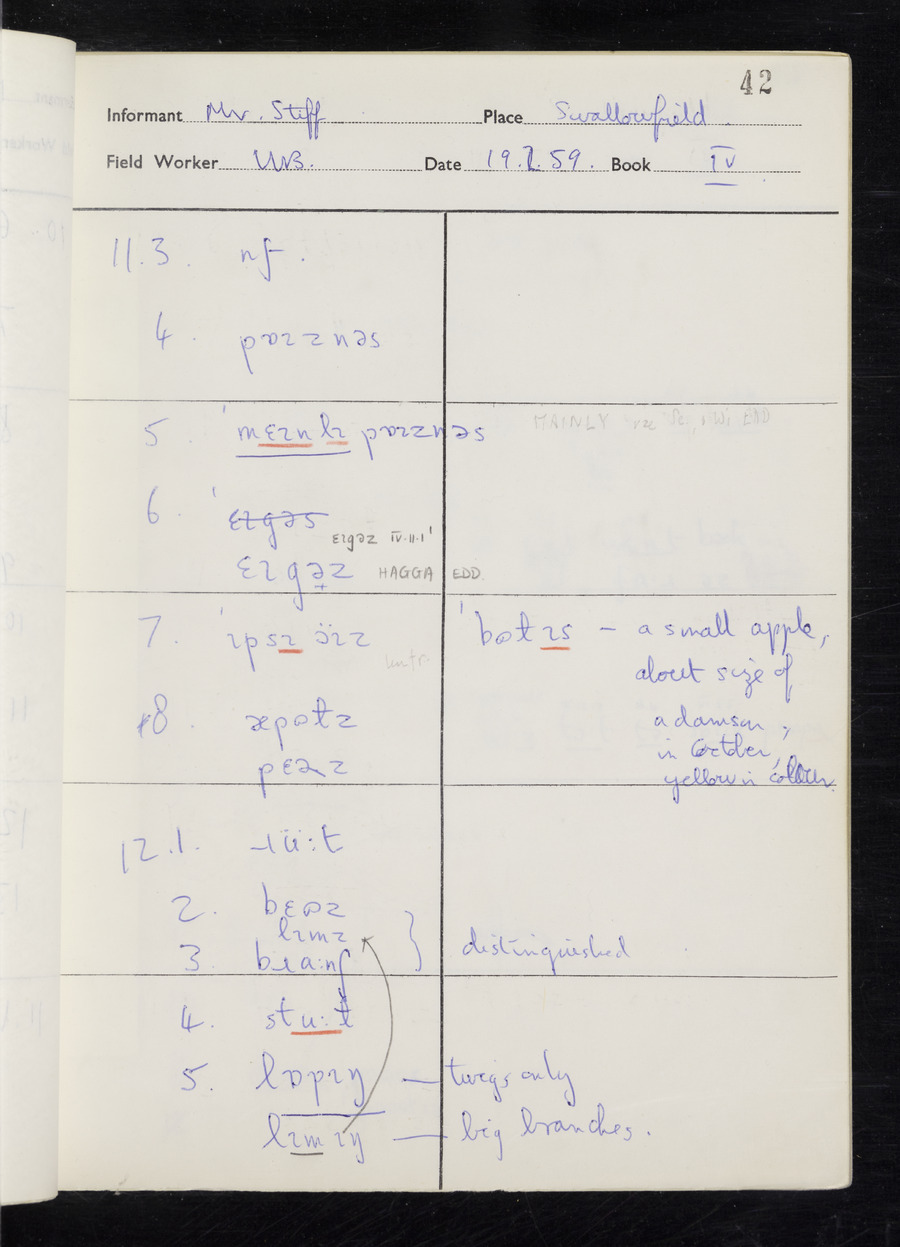 42
Informant Mr. Stiff Place Swallowfield
Field Worker WB. Date 19.2.59. Book IV
11.3. nf.
4. pɒɪznəs
5. ˈmɛɪnlɪ pɒɪznəs MAINLY
6. ˈɛɪgəs
ɛɪgəz IV.11.1
ɛɪgəz HAGGA EDD.
7. ˈɪpsɪ ɔ̈ɪz ˈbɒtɪs – a small apple,
about size of
a damson,
in October,
yellow in colour.
8. æpɒtz
pɛəz
12.1. ɹü:t
2. bɛɒz
lɪmz
3. bɹa:nʃ } distinguished
4. stu:t
5. lɒpɪŋ — twigs only
lɪmɪŋ — big branches.